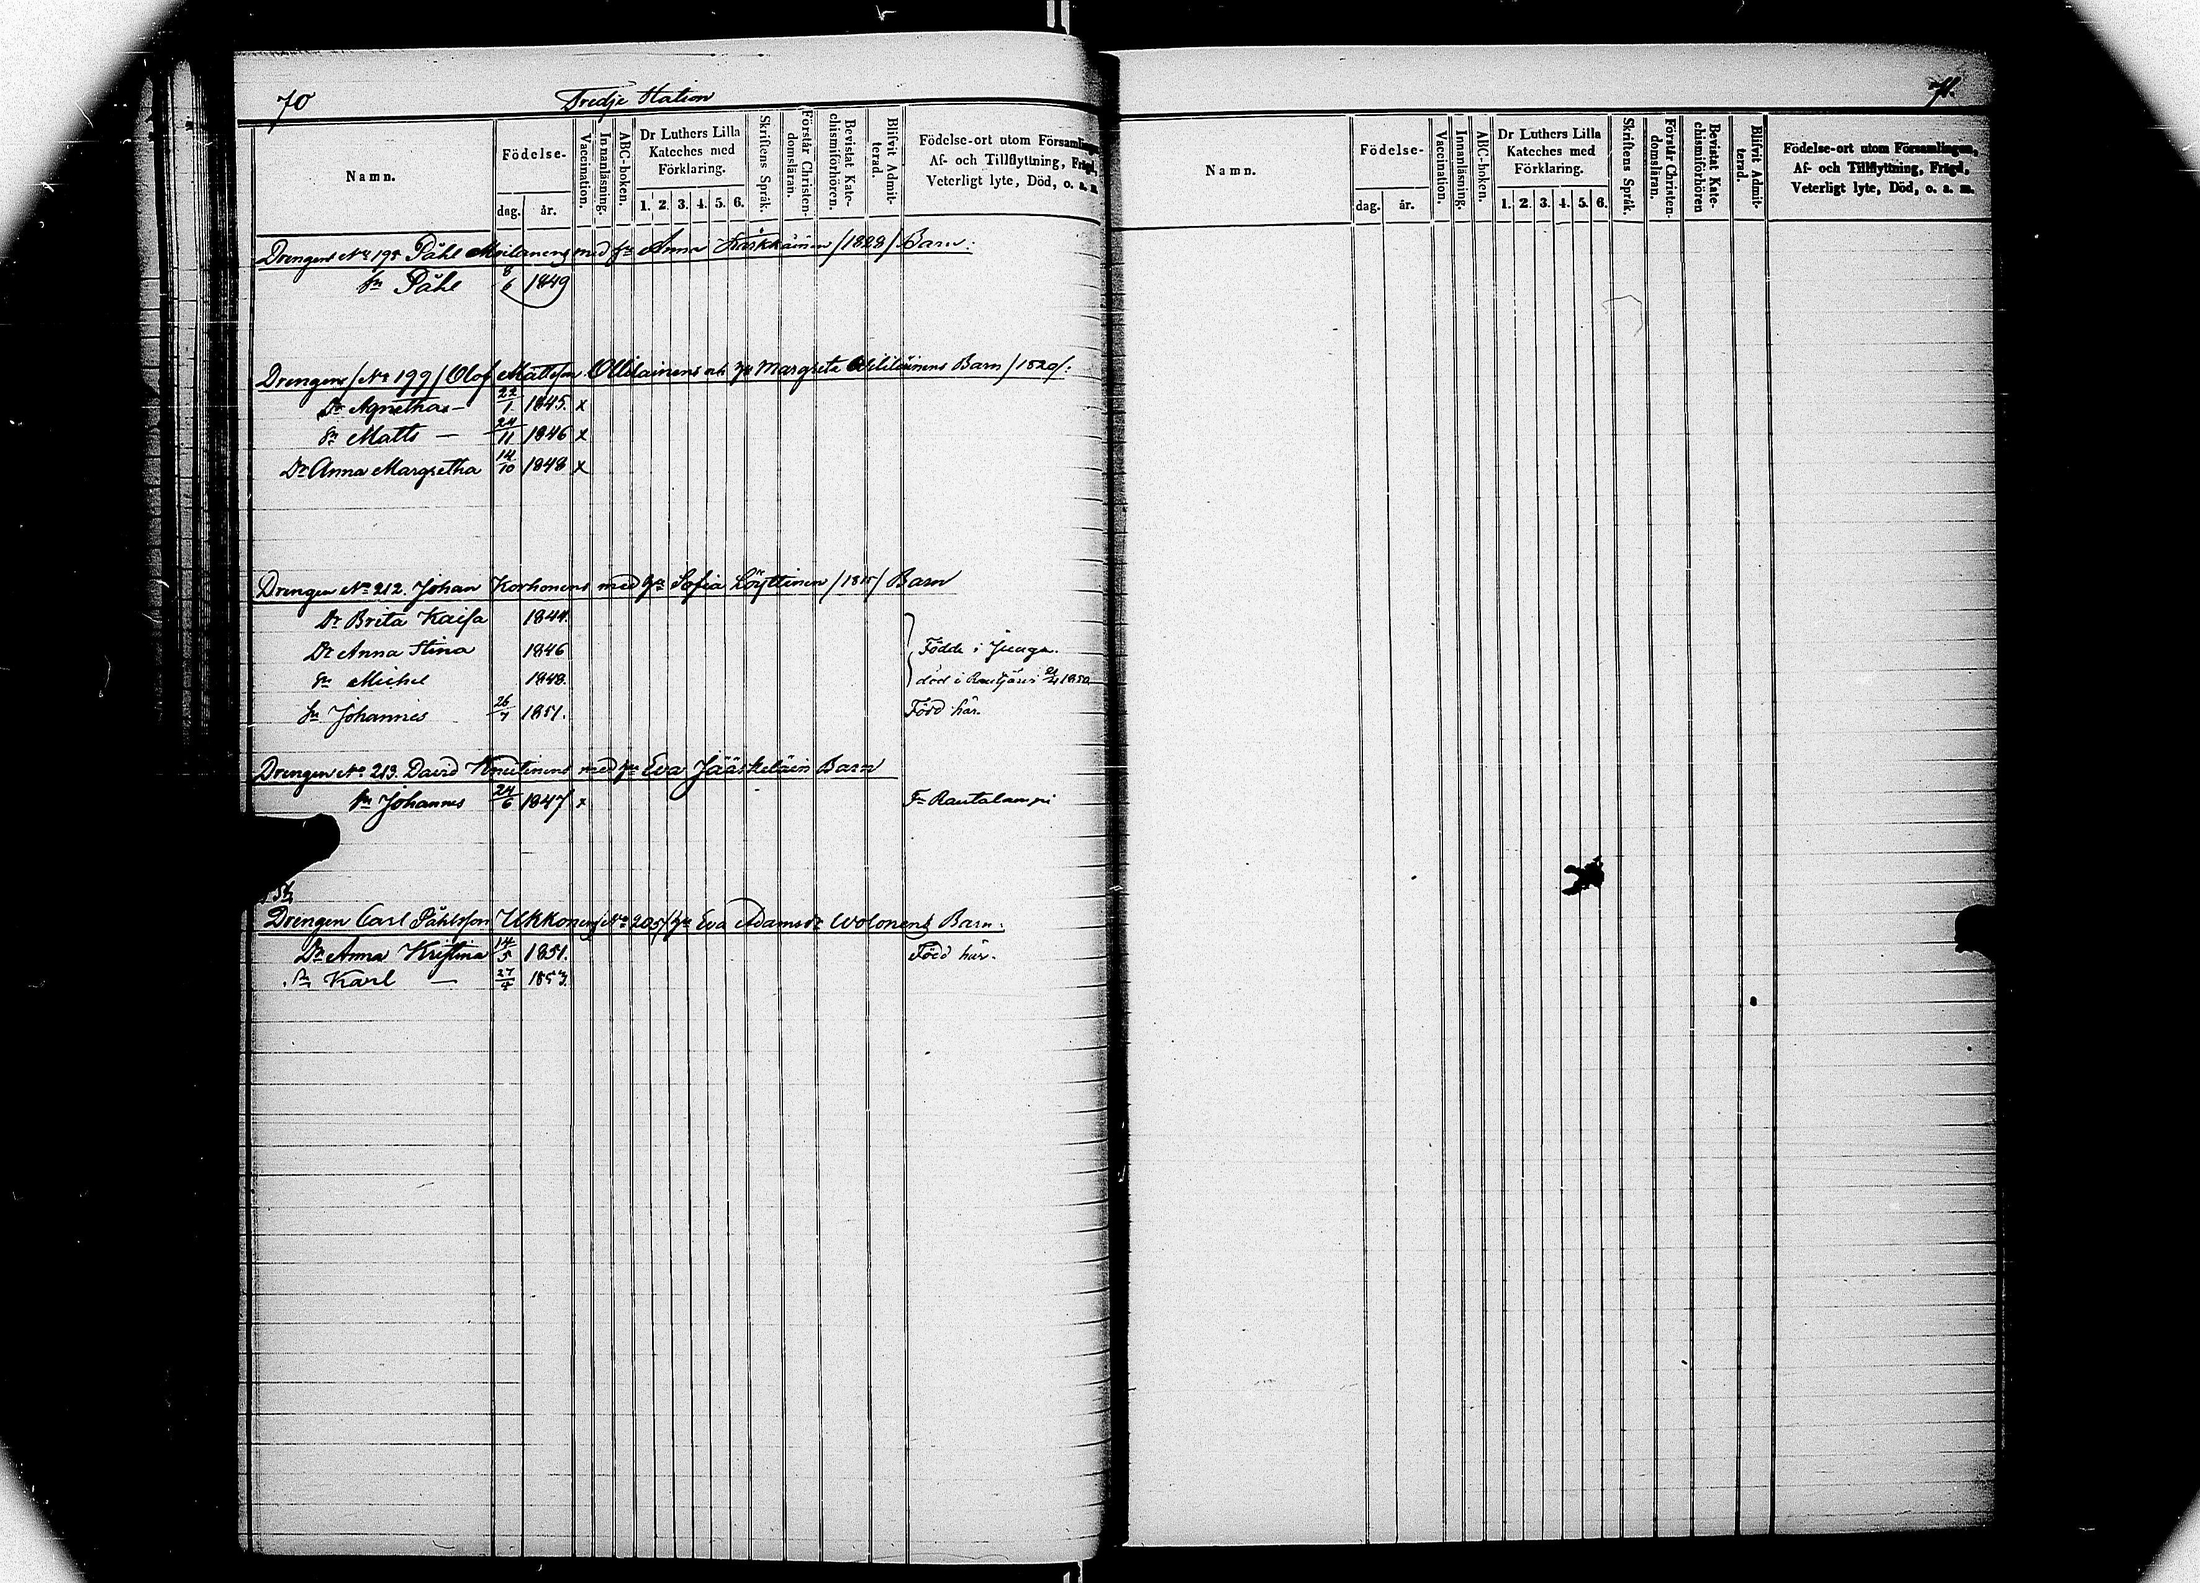 70 Tredje Station
Namn. Födelse- dag. år. Vaccination. Innanläsning. ABC-boken. Dr Luthers Lilla Kateches med Förklaring. 1. 2. 3. 4. 5. 6. Skriftens Språk. Förstår Christendomsläran. Bevistat Katechismiförhören. Blifvit Admitterad. Födelse-ort utom Församlingen, Af- och Tillflyttning, Frägd, Veterligt lyte, Död, o. s. m.
Drengens No 195 Påhl Moilanens med hu Anna Karkkäinen /1828/ Barn:
Sn Påhl 8/6 1849
Drengens /No 199/ Olof Mattsson Ollilainens och hu Margreta Barn /1820/:
Dr Agnetha – 22/1 1845. x
Sn Matts – 24/11 1846 x
Dr Anna Margretha 14/10 1848 x
Drengen No 212. Johan Korhonens med hu Sofia Löyttinen /1815/ Barn
Dr Brita Kaisa 1844.
Dr Anna Stina 1846 Födde i Juuga.
Sn Michel 1848. död i 1850
Sn Johannes 26/7 1851. Född här.
Drengen No 213. David Knuutinens med hu Eva Jääskeläin Barn
Sn Johannes 24/6 1847 x Fr Rautalampi
Drengen Carl Påhlsson Ukkonens No 205/ hu Eva Adamsdr Wolonens Barn:
Dr Anna Kristina 14/5 1851. Född här.
Sn Karl – 27/4 1853.
71.
Namn. Födelse- dag. år. Vaccination. Innanläsning. ABC-boken. Dr Luthers Lilla Kateches med Förklaring. 1. 2. 3. 4. 5. 6. Skriftens Språk. Förstår Christendomsläran. Bevistat Katechismiförhören Blifvit Admitterad. Födelse-ort utom Församlingen, Af- och Tillflyttning, Frägd, Veterligt lyte, Död, o. s. m.